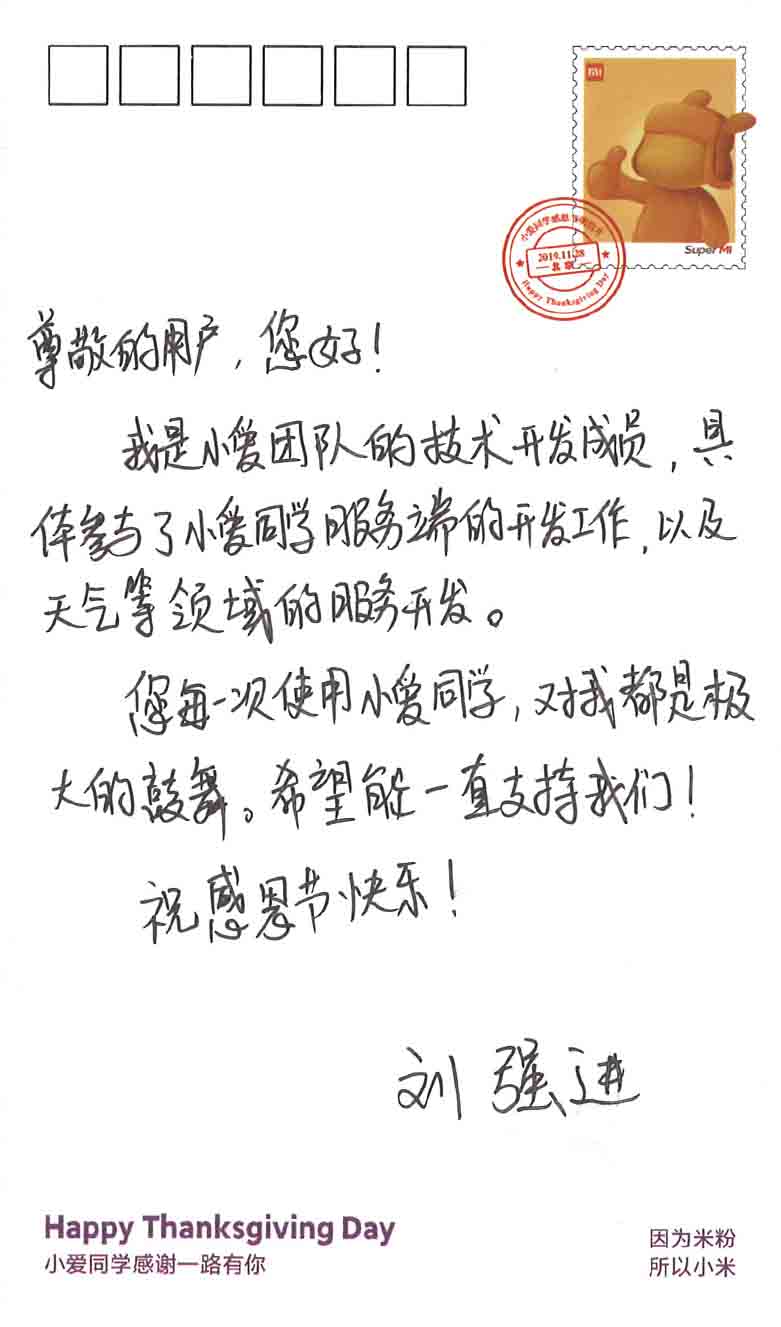 MI
Super MI
小爱同学感恩节明信片
2019.11.28
北京
Happy Thanksgiving Day
尊敬的用户，您好！
我是小爱团队的技术开发成员，具
体参与了小爱同学服务端的开发工作，以及
天气等领域的服务开发。
您每一次使用小爱同学，对我都是极
大的鼓舞。希望能一直支持我们！
祝感恩节快乐！
刘强进
Happy Thanksgiving Day
小爱同学感谢一路有你
因为米粉
所以小米